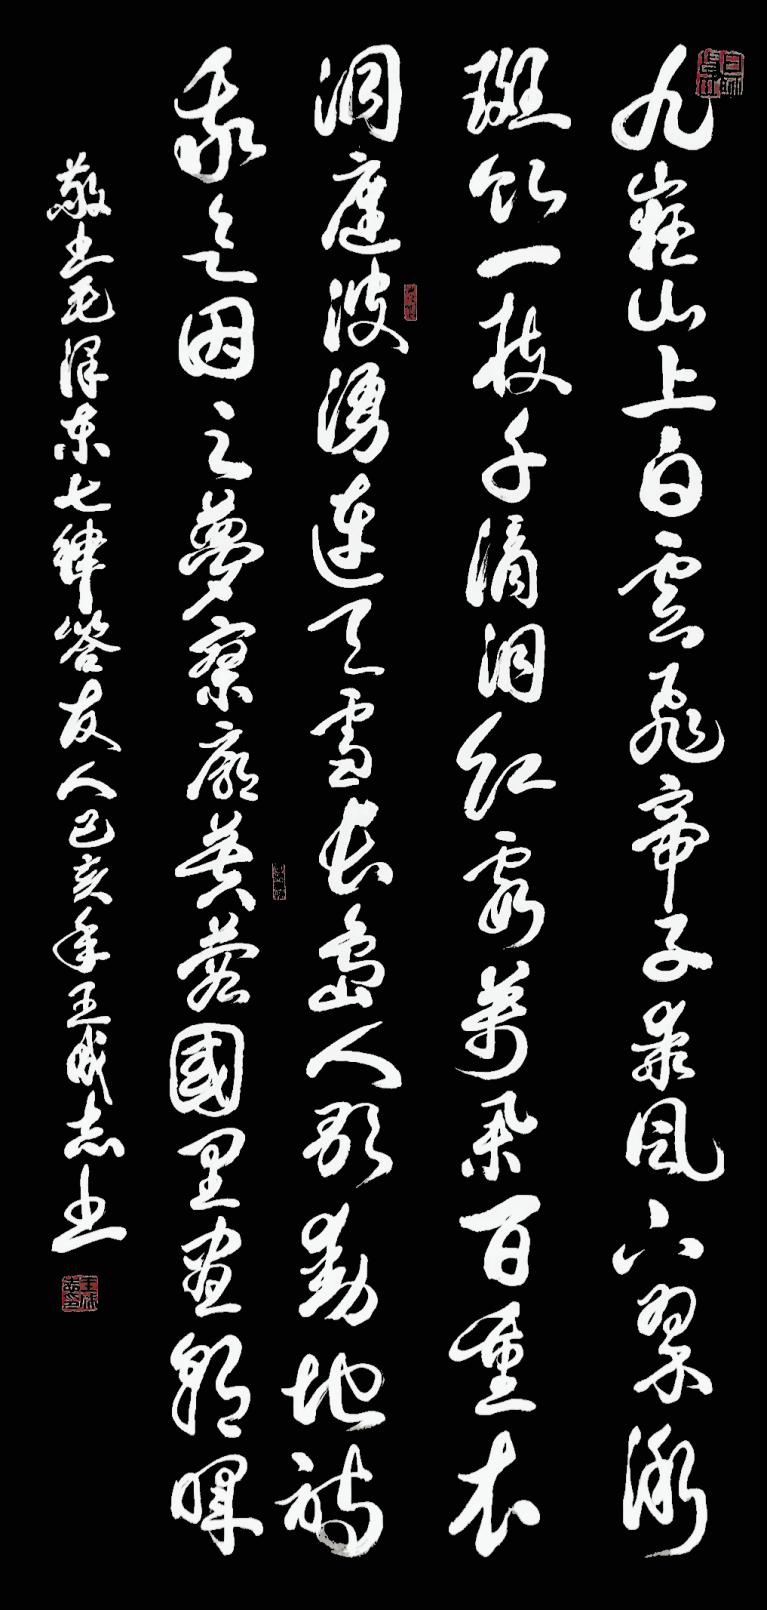 九嶷山上白雲飛帝子乘風下翠微
斑竹一枝千滴泪紅霞萬朵百重衣
洞庭波湧連天雪長島人歌動地詩
我欲因之夢寥廓芙蓉國里盡朝暉
敬書毛澤東七律答友人己亥年王成志書